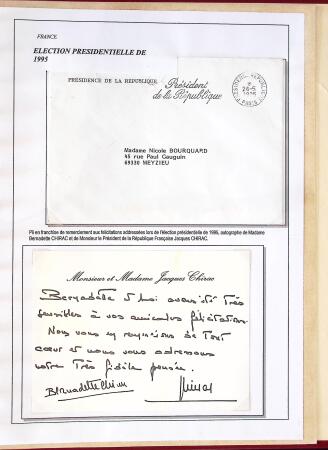 FRANCE
ELECTION PRESIDENTIELLE DE
1995
PRÉSIDENCE DE LA RÉPUBLIQUE
Président
de la République
24-5
1995
PARIS
Madame Nicole BOURQUARD
45 rue Paul Gauguin
69330 MEYZIEU
Pli en franchise de remerciement aux félicitations addressées lors de l'élection présidentielle de 1995, autographe de Madame
Bernadette CHIRAC et de Monsieur le Président de la République Française Jacques CHIRAC.
Monsieur et Madame Jacques Chirac
Bernadette et moi avons été très
sensibles à vos amicales félicitations.
Nous vous en remercions de tout
cœur et nous vous adressons
notre très fidèle pensée.
Bernadette Chirac